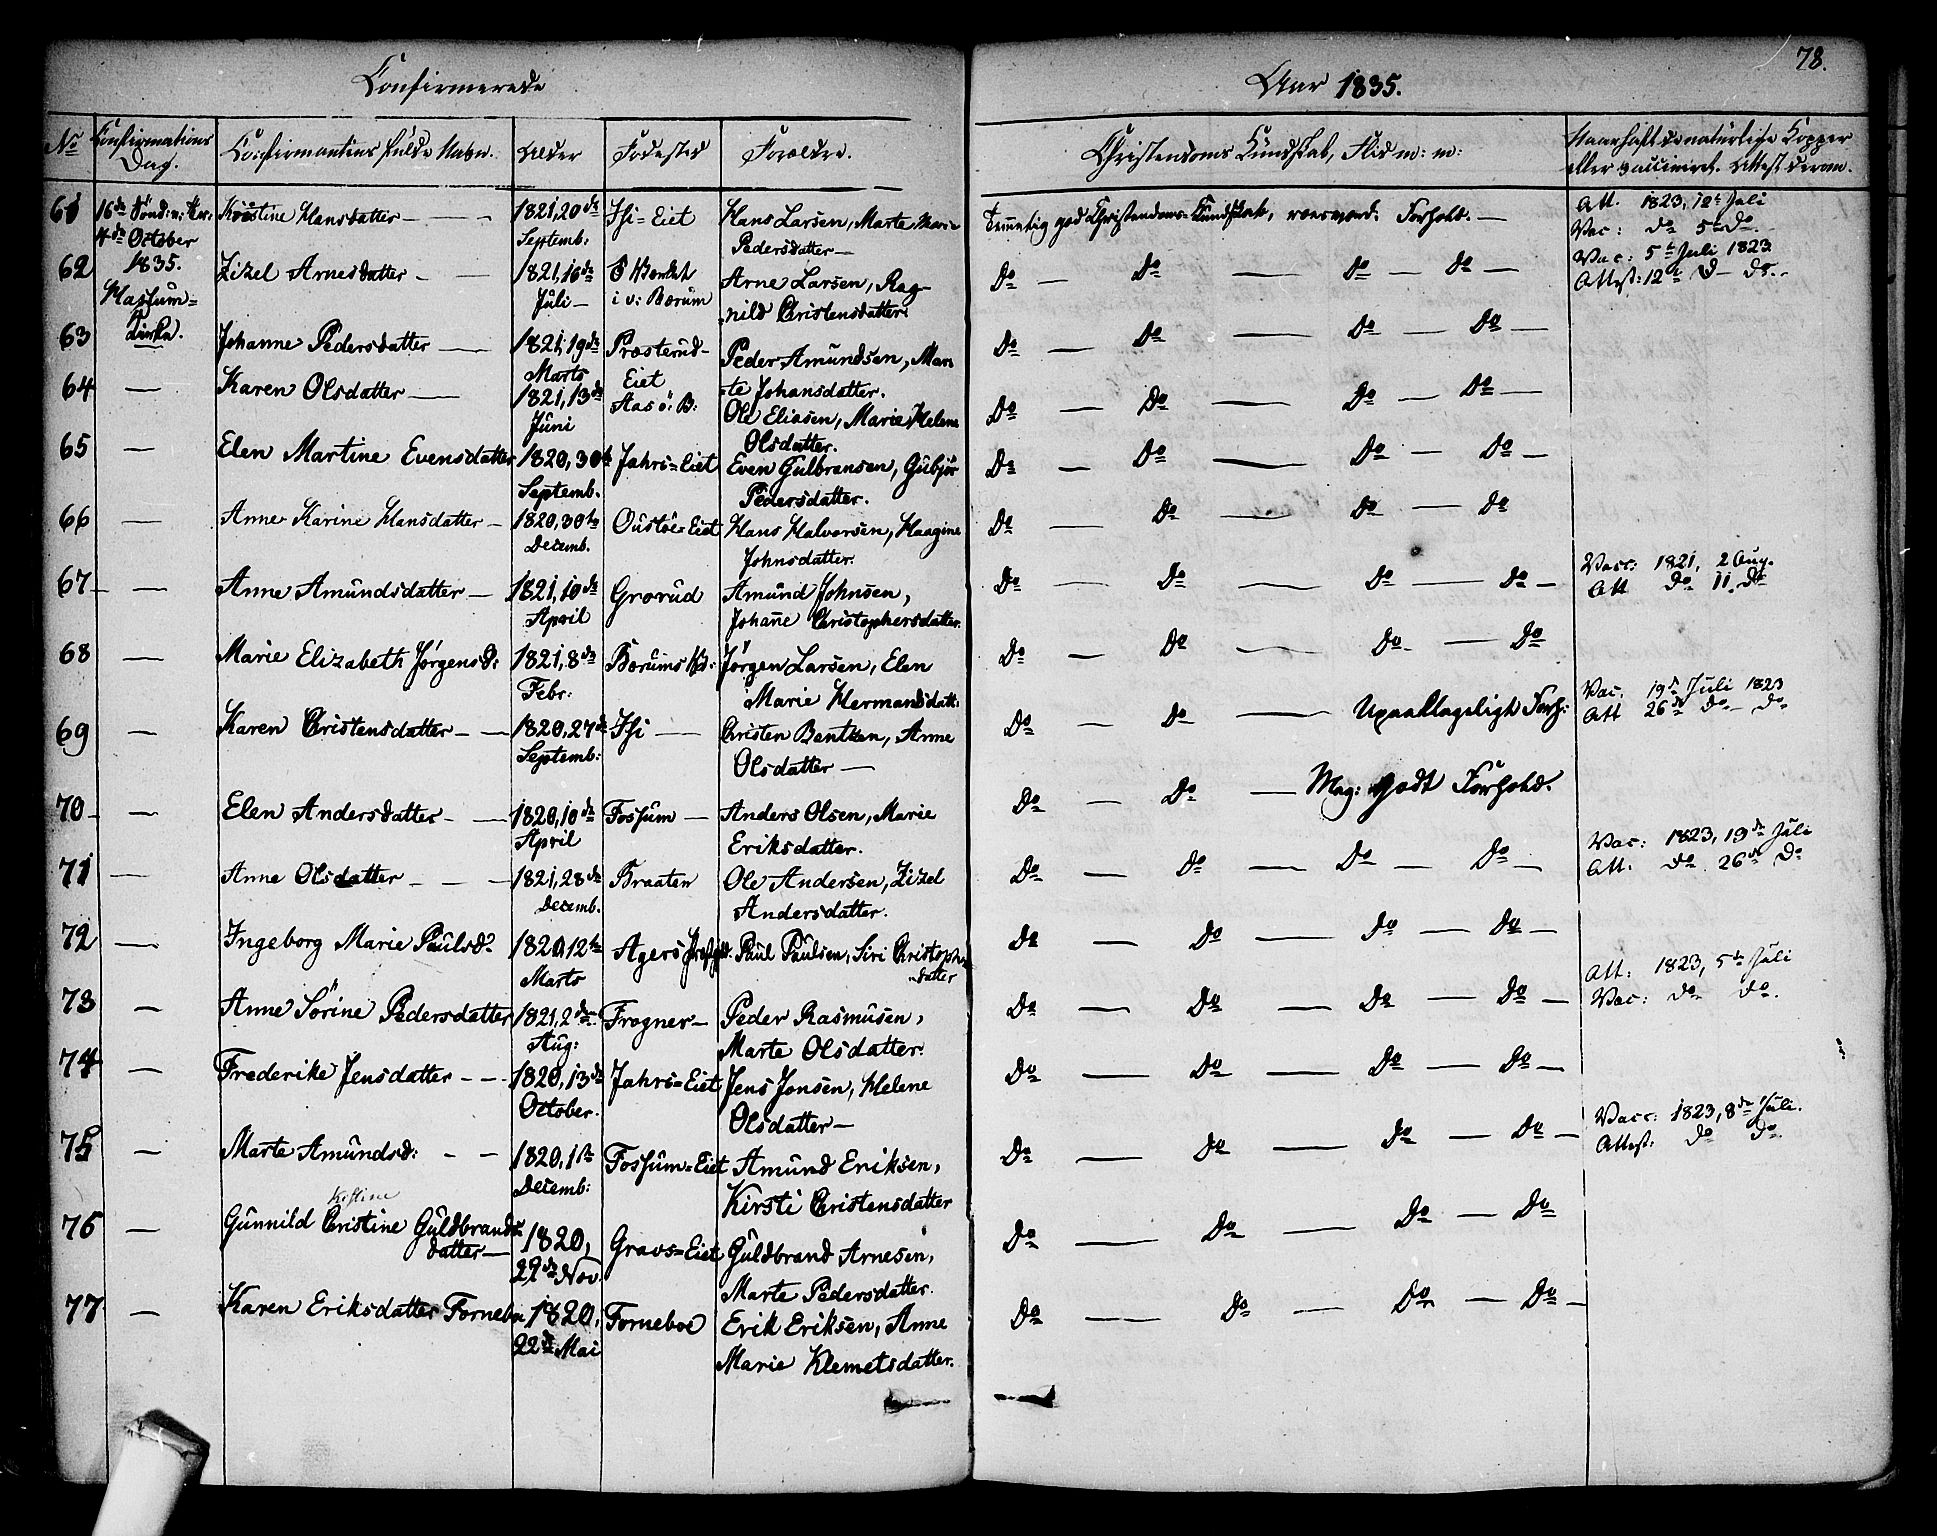 Confirmerede
Aar 1835.
78.
No Confirmations Dag. Confirmantens fulde Navn. Alder Fødested Forældre. Christendoms Kundskab, Flid m: m: Naar havt de naturlige Kopper
eller vaccineret. Attest derom.
61 16de Sønd: 4de October 1835. Kirke. Kristine Hansdatter — 1821, 20de Septemb: Isi=Eiet Hans Larsen, Marte Marie Pedersdatter — god Christendoms=Kundskab, Forhold. — Att. 1823, 12te Juli
Vac: do 5te do.
62 Zizel Arnesdatter — — 1821, 16de Juli — i v: Bærum Arne Larsen, Ragnild Christensdatter. Do — Do — Do — Do — Vac: 5te Juli 1823
Attest: 12te D— do.
63 Johanne Pedersdatter — 1821, 19de Marts Præsterud=Eiet Peder Amundsen, Marte Johansdatter. Do — Do — Do — Do —
64 — Karen Olsdatter — 1821, 13de Juni Aas ö: B: Ole Eliasen, Marie Helene Olsdatter. Do — Do — Do — Do —
65 — Elen Martine Evensdatter 1820, 30te Septemb. Jahrs=Eiet Even Gulbransen, Gubjør Pedersdatter. Do — Do — Do — Do —
66 — Anne Karine Hansdatter — 1820, 30te Decemb. Oustøe=Eiet Hans Halvorsen, Haagine Johnsdatter. Do — Do — Do — Do
67 — Anne Amundsdatter — 1821, 10de April Grorud Amund Johnsen, Johane Christophersdatter. Do — Do — Do — Do — Vacc: 1821, 2 Aug.
Att Do 11. Do
68 — Marie Elizabeth Jørgensd: 1821, 8de Febr: Bærums V: Jørgen Larsen, Elen Marie Hermansdatt: Do — Do — Do — Do
69 — Karen Christensdatter — 1820, 27de Septemb: Isi — Christen Bentzen, Anne Olsdatter — Do — Do — Upaaklageligt Forh: Vac. 19de Juli 1823
Att 26de Do — Do
70 — Elen Andersdatter — 1820, 10de April Fossum — Anders Olsen, Marie Eriksdatter. Do — Do — Meg: godt Forhold.
71 — Anne Olsdatter — — — 1821, 28de Decemb. Braaten Ole Andersen, Zizel Andersdatter. Do — Do — Do — Do — Vac: 1823, 19de Juli
Att. Do 26de Do
72 — Ingeborg Marie Paulsd: 1820, 12te Marts Agers Paul Paulsen, Siri Christophersdatter Do — Do — Do — Do —
73 — Anne Sörine Pedersdatter 1821, 2den Aug: Frogner — Peder Rasmusen, Marte Olsdatter. Do — Do — Do — Do — Att: 1823, 5te Juli
Vac: Do Do.
74 — Frederike Jensdatter — — 1820, 13de October. Jahrs=Eiet Jens Jonsen, Helene Olsdatter — Do — Do — Do — Do —
75 — Marte Amundsd: — — 1820, 1ste Decemb: Fossum=Eiet Amund Eriksen, Kirsti Christensdatter Do — Do — Do — Do — Vacc: 1823, 8de Juli.
Attest: Do Do
76 — Gunnild Cristine Guldbrandsdatter — 1820, 22de Nov. Gravs=Eiet Guldbrand Arnesen, Marte Pedersdatter. Do — Do — Do — Do
77 — Karen Eriksdatter Forneboe 1820, 22de Mai Forneboe Erik Eriksen, Anne Marie Klemetsdatter. Do — Do — Do — Do —